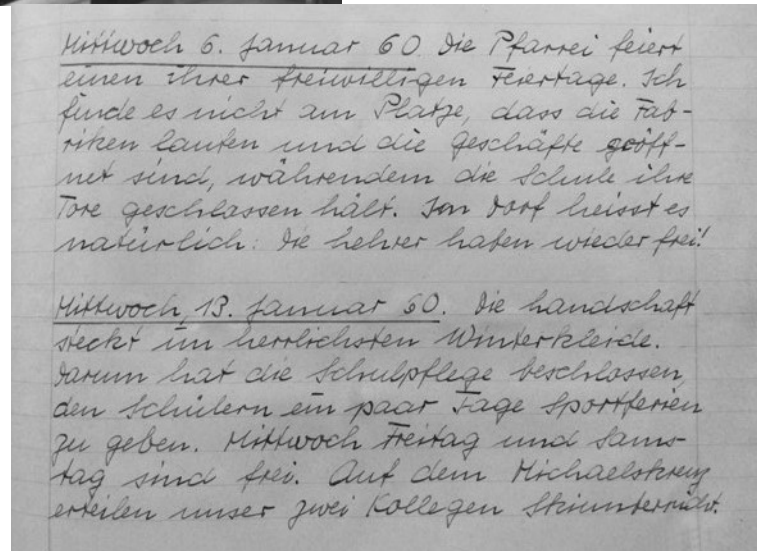 Mittwoch 6. Januar 60. Die Pfarrei feiert
einen ihrer freiwilligen Feiertage. Ich
finde es nicht am Platze, dass die Fab-
riken laufen und die Geschäfte geöff-
net sind, währendem die Schule ihre
Tore geschlossen hält. Im Dorf heisst es
natürlich: Die Lehrer haben wieder frei!
Mittwoch, 13. Januar 60. Die Landschaft
steckt im herrlichsten Winterkleide.
Darum hat die Schulpflege beschlossen,
den Schülern ein paar Tage Sportferien
zu geben. Mittwoch Freitag und Sams-
tag sind frei. Auf dem Michaelskreuz
erteilen unser zwei Kollegen Skiunterricht.